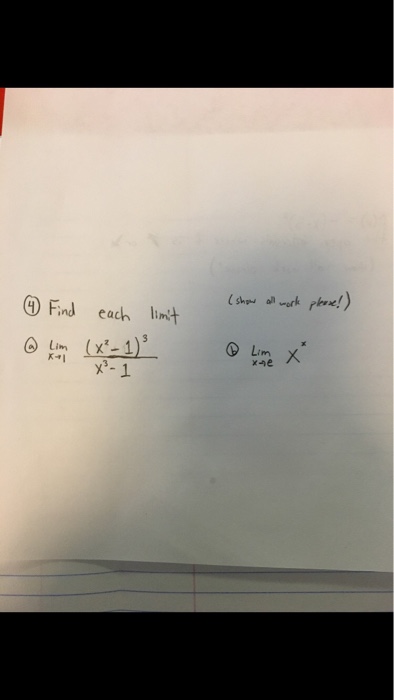 ④ Find each limit (show all work please!)
ⓐ Lim x→1 (x²-1)³ / x³-1
ⓑ Lim x→e xˣ